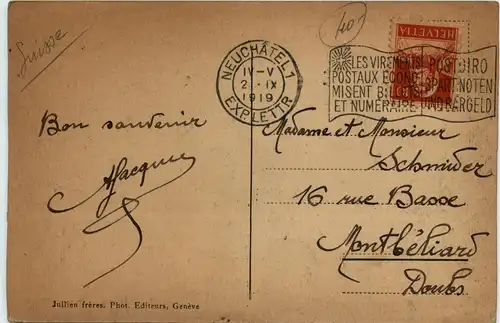 Suisse
40
HELVETIA
NEUCHÂTEL 1
IV–V
2 . IX
1919
EXP. LETTR
LES VIREMENTS
POSTAUX ECONO
MISENT BILLETS
ET NUMÉRAIRE
POSTGIRO
SPART NOTEN
UND BARGELD
Bon souvenir
AJacques
Madame et Monsieur
Schmider
16 rue Basse
Montbéliard
Doubs
Jullien frères. Phot. Editeurs, Genève